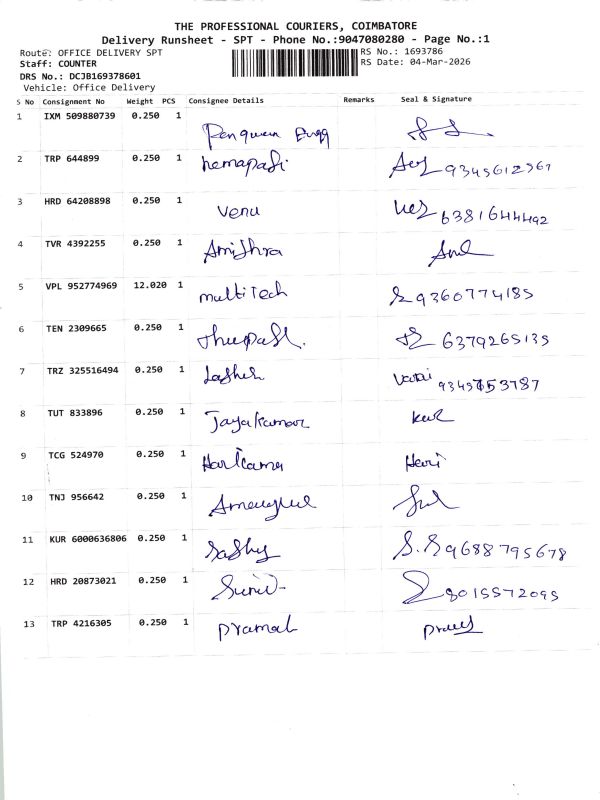 THE PROFESSIONAL COURIERS, COIMBATORE
Delivery Runsheet - SPT - Phone No.:9047080280 - Page No.:1
Route: OFFICE DELIVERY SPT RS No.: 1693786
Staff: COUNTER RS Date: 04-Mar-2026
DRS No.: DCJB169378601
Vehicle: Office Delivery
S No Consignment No Weight PCS Consignee Details Remarks Seal & Signature
1 IXM 509880739 0.250 1
2 TRP 644899 0.250 1 hemapasi 9345612567
3 HRD 64208898 0.250 1 Venu 6381644492
4 TVR 4392255 0.250 1 Amithra
5 VPL 952774969 12.020 1 multiTech 9360774185
6 TEN 2309665 0.250 1 6379265135
7 TRZ 325516494 0.250 1 9345753787
8 TUT 833896 0.250 1 Jayakumar
9 TCG 524970 0.250 1 Hari
10 TNJ 956642 0.250 1
11 KUR 6000636806 0.250 1 Sashy S.S 9688795678
12 HRD 20873021 0.250 1 Sunil 8015572095
13 TRP 4216305 0.250 1 Pramal